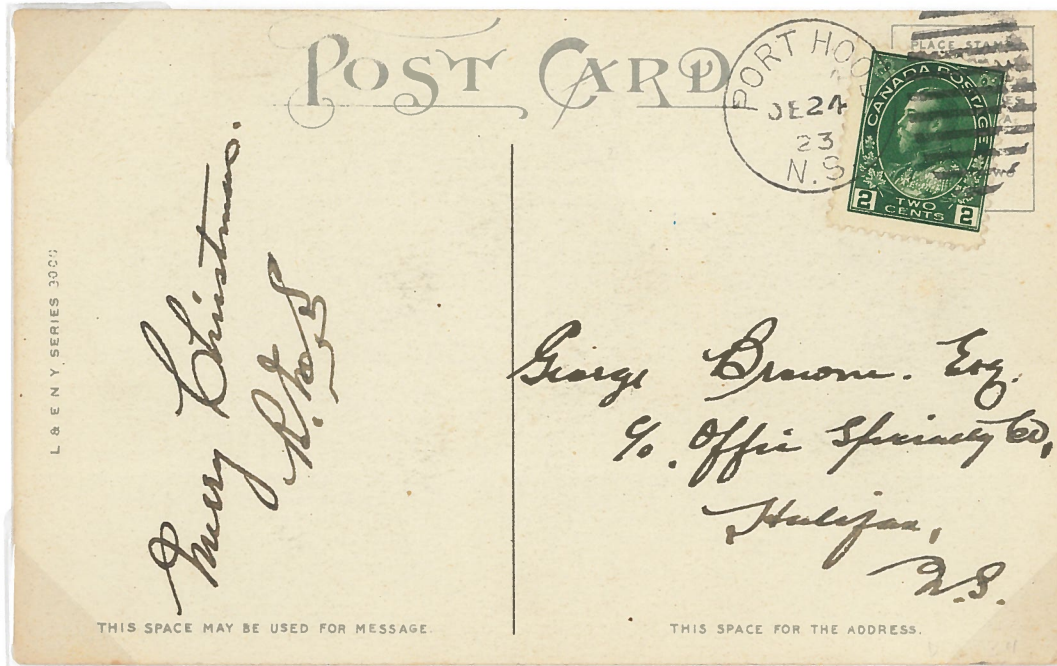 POST CARD
PORT HOOD
DE 24
23
N.S.
PLACE STAMP
CANADA POSTAGE
2 TWO CENTS 2
L & E N Y SERIES 300
Merry Christmas.
George Browne. Esq.
c/o. Office Specialty Co,
Halifax,
N.S.
THIS SPACE MAY BE USED FOR MESSAGE.
THIS SPACE FOR THE ADDRESS.